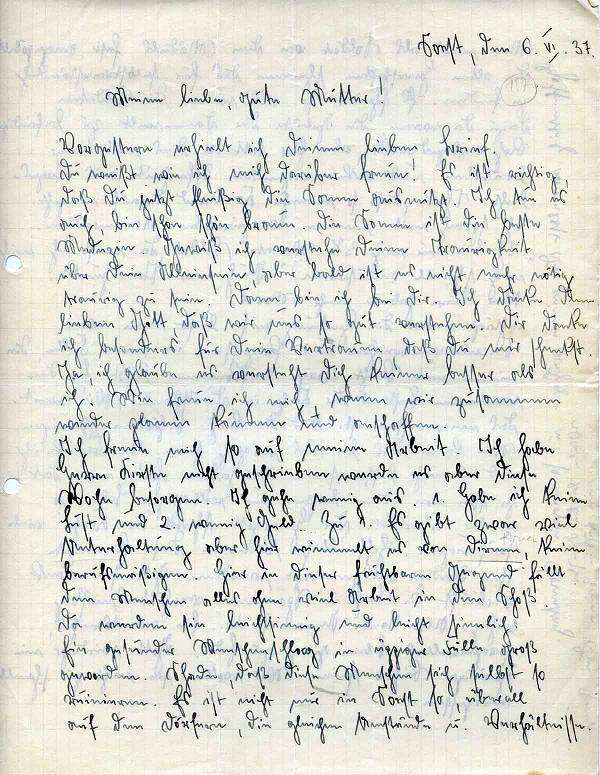 Forst, den 6. VI. 37.
117
Meine liebe, gute Mutter!
Vorgestern erhielt ich Deinen lieben Brief.
Du weißt wie ich mich darüber freue! Es ist richtig,
daß Du jetzt fleißig die Sonne ausnützt. Ich tue es
auch, bin schon schön braun. Die Sonne ist die beste
Medizin. Gewiß ich verstehe Deine Traurigkeit
über Dein Alleinsein, aber bald ist es nicht mehr nötig
traurig zu sein. Dann bin ich bei Dir. Ich danke dem
lieben Gott, daß wir uns so gut verstehen. Dir danke
ich besonders für Dein Vertrauen daß Du mir schenkst.
Ja, ich glaube es versteht Dich keiner besser als
ich. Wie freue ich mich wenn wir zusammen
wieder planen können und schaffen.
Ich freue mich so auf meine Arbeit. Ich habe
Herrn nicht geschrieben werde es aber diese
Woche besorgen. Ich gehe wenig aus. 1. habe ich keine
Lust und 2 wenig Geld. Zu 1. Es gibt zwar viel
Unterhaltung aber hier wimmelt es von Dirnen, keine
berufsmäßigen. Hier in dieser fruchtbaren Gegend fällt
den Menschen alles ohne viel Arbeit in den Schoß
Da werden sie leichtsinnig und leicht sinnlich.
Ein gesunder Menschenschlag in üppiger Fülle groß
geworden. Schade, daß diese Menschen sich selbst so
ruinieren. Es ist nicht nur in Forst so, überall
auf den Dörfern, die gleichen Umstände u. Verhältnisse.